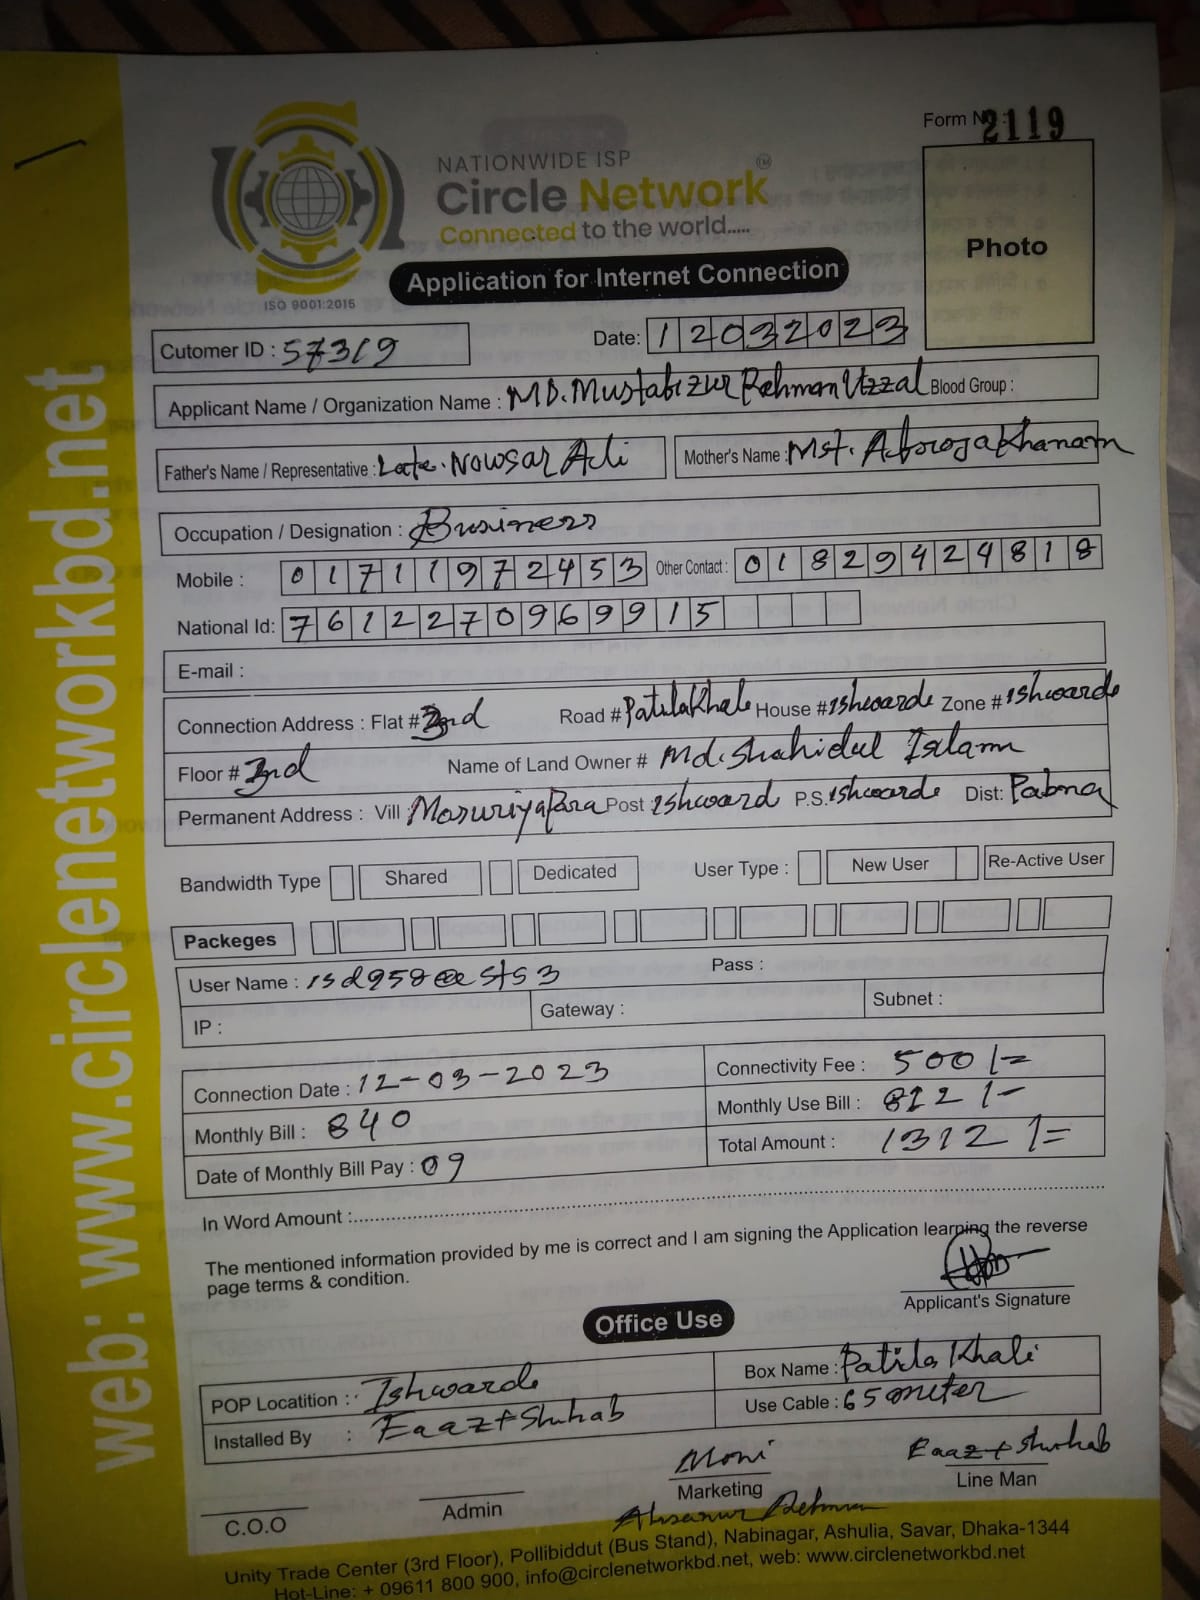 Form No : 2119
NATIONWIDE ISP
Circle Network TM
Connected to the world.....
ISO 9001:2015
Application for Internet Connection
Photo
Cutomer ID : 57319
Date: 12032023
Applicant Name / Organization Name : MD. Mustafizur Rahman Uzzal Blood Group :
Father's Name / Representative : Late. Nowsar Ali Mother's Name : Mst. Afroja Khanam
Occupation / Designation : Business
Mobile : 01711972453 Other Contact : 01829424818
National Id: 7612270969915
E-mail :
Connection Address : Flat # 2nd Road # Patilakhali House # Ishwarde Zone # Ishwarde
Floor # 2nd Name of Land Owner # Md. Shahidul Islam
Permanent Address : Vill Moswriyapara Post Ishward P.S. Ishwarde Dist: Pabna
Bandwidth Type Shared Dedicated User Type : New User Re-Active User
Packeges
User Name : isd958@sts3 Pass :
IP : Gateway : Subnet :
Connection Date : 12-03-2023 Connectivity Fee : 500/=
Monthly Bill : 840 Monthly Use Bill : 812/-
Date of Monthly Bill Pay : 09 Total Amount : 1312/=
In Word Amount :
The mentioned information provided by me is correct and I am signing the Application learning the reverse
page terms & condition.
Applicant's Signature
Office Use
POP Locatition : Ishwarde Box Name : Patila Khali
Installed By : Eaaz + Shuhab Use Cable : 65 meter
Moni Eaaz + Shuhab
C.O.O Admin Marketing Line Man
Ahsanur Rehman
Unity Trade Center (3rd Floor), Pollibiddut (Bus Stand), Nabinagar, Ashulia, Savar, Dhaka-1344
Hot-Line: + 09611 800 900, info@circlenetworkbd.net, web: www.circlenetworkbd.net
web: www.circlenetworkbd.net